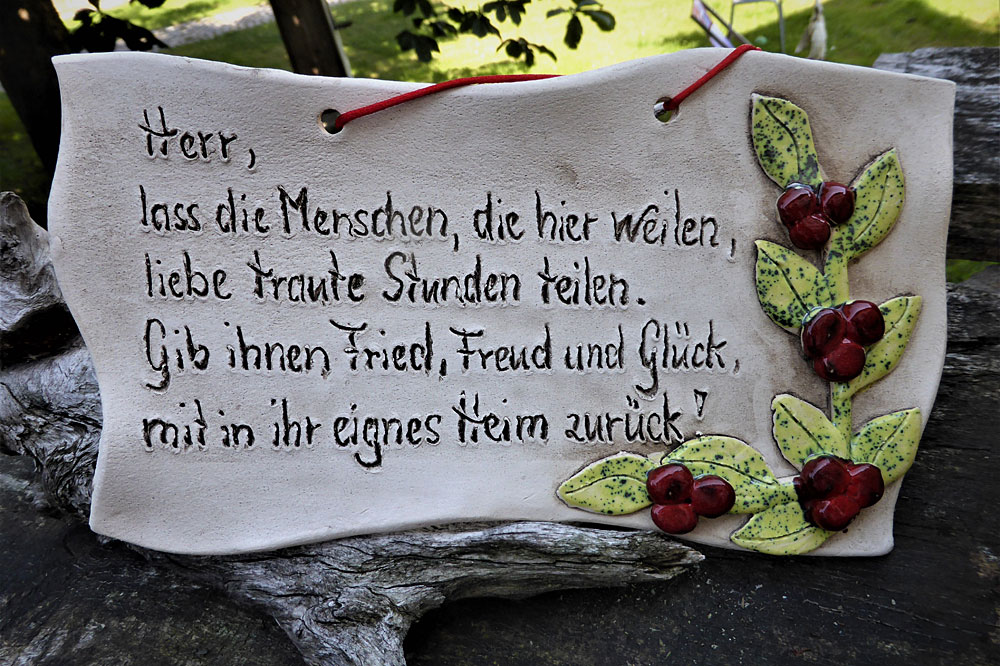 Herr,
lass die Menschen, die hier weilen,
liebe traute Stunden teilen.
Gib ihnen Fried, Freud und Glück,
mit in ihr eignes Heim zurück!